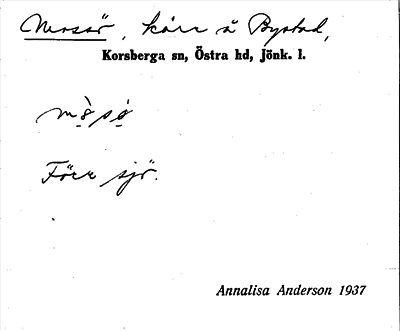 Mosör, kärr å Bystad,
Korsberga sn, Östra hd, Jönk. l.
Förr sjö.
Annalisa Anderson 1937